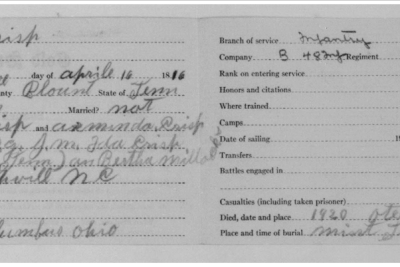 risp
day of aprile 16 1816
nty Blount State of Tenn
Married? not
isp and arminda Crisp
J. m. Ida Crisp
(Tenn) an Bertha
will N C
lumbus ohio
Branch of service Infantry
Company B 48 Inf Regiment
Rank on entering service
Honors and citations
Where trained
Camps
Date of sailing 19
Transfers
Battles engaged in
Casualties (including taken prisoner)
Died, date and place 1920 ote
Place and time of burial mint